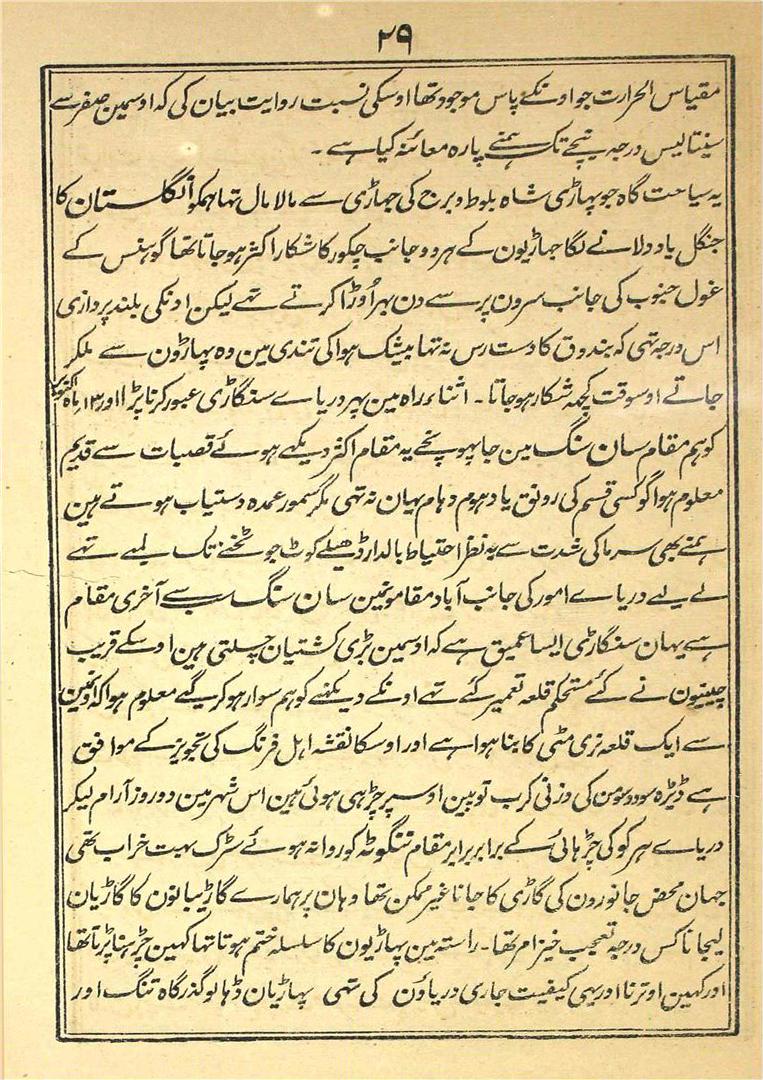 ۲۹
مقیاس الحرارت جو اونکے پاس موجود تھا اوسکی نسبت روایت بیان کی کہ اوسمین صفر سے
سینتالیس درجہ نیچے تک ہمنے پارہ معائنہ کیا ہے ۔
یہ سیاحت گاہ جو پہاڑی شاہ بلوط و برج کی جہاڑی سے مالا مال تہا ہمکو انگلستان کا
جنگل یاد دلانے لگا جہاڑیون کے ہر دو جانب چکور کا شکار اکثر ہوجاتا تھا گو ہنس کے
غول جنوب کی جانب سرون پر سے دن بہر اُوڑا کرتے تہے لیکن اونکی بلند پردازی
اس درجہ تہی کہ بندوق کا دست رس نہ تہا بیشک ہوا کی تندی مین وہ پہاڑون سے ملکر
جاتے اوسوقت کچہہ شکار ہوجاتا ۔ اثناء راہ مین پہر دریاے سنگاڑی عبور کرنا پڑا اور ۱۳ ماہ اکتوبر
کو ہم مقام سان سنگ مین جا پہونچے یہ مقام اکثر دیکہے ہوئے قصبات سے قدیم
معلوم ہوا گو کسی قسم کی رونق یا دہوم دہام یہان نہ تہی مگر سمور عمدہ دستیاب ہوتے ہین
ہمنے بھی سرما کی شدت سے بہ نظر احتیاط بالدار ڈھیلے کوٹ جو ٹخنے تک لمبے تہے
لے لیے دریاے امور کی جانب آباد مقامونمین سان سنگ سب سے آخری مقام
ہے یہان سنگاڑی ایسا عمیق ہے کہ اوسمین بڑی کشتیان چلتی ہین اوسکے قریب
چینیون نے کئے مستحکم قلعہ تعمیر کئے تہے اونکے دیکہنے کو ہم سوار ہو کر گیے معلوم ہوا کہ اونمین
سے ایک قلعہ نری مٹی کا بنا ہوا ہے اور اوسکا نقشہ اہل فرنگ کی تجویز کے موافق
ہے ڈیڑہ سو دو سو من کی وزنی کرب توپین اوسپر چڑہی ہوئی ہین اس شہر مین دو روز آرام لیکر
دریاے ہرکو کی چڑہائی کے برابر برابر مقام تنگوٹہ کو روانہ ہوئے سڑک بہت خراب تھی
جہان محض جانورون کی گاڑی کا جانا غیر ممکن تھا وہان پر ہمارے گاڑیبانون کا گاڑیان
لیجانا کس درجہ تعجب خیز امر تھا ۔ راستہ مین پہاڑیون کا سلسلہ ختم ہوتا تہا کہین چڑہنا پڑتا تھا
اور کہین اوترنا اور یہی کیفیت جاری دریاؤن کی تہی پہاڑیان ڈہالو گذرگاہ تنگ اور